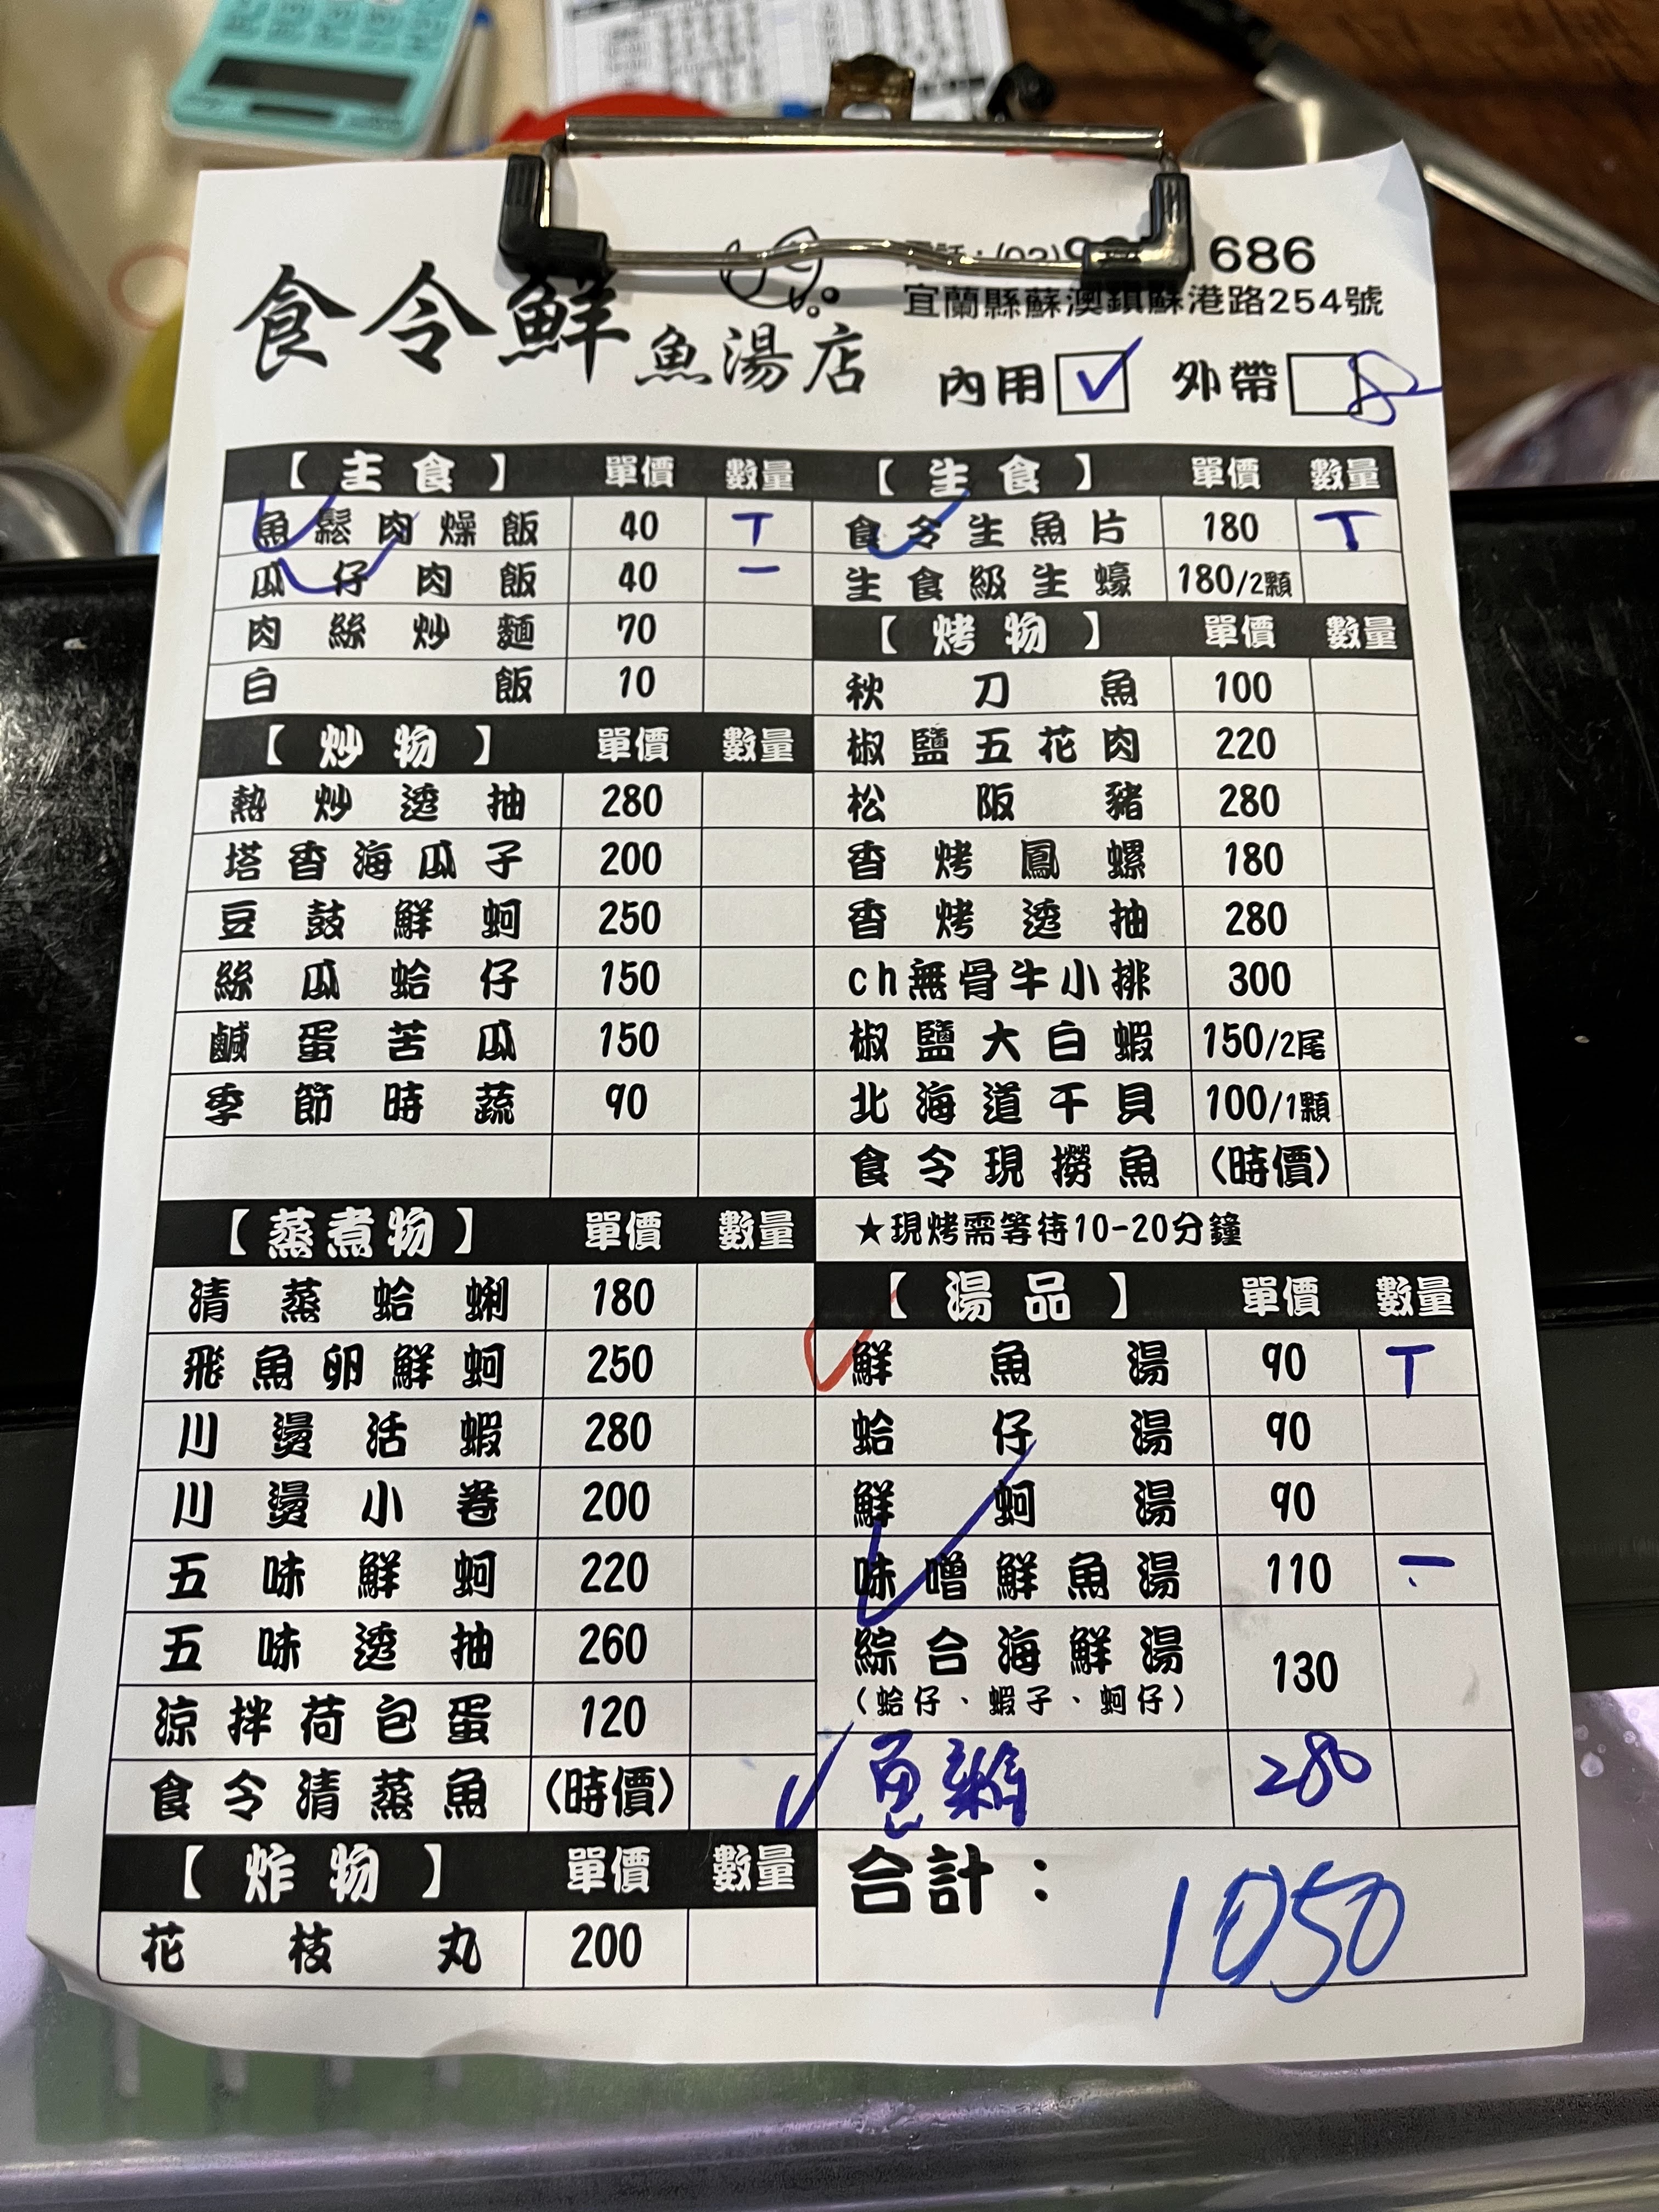 食令鮮魚湯店
686
宜蘭縣蘇澳鎮蘇港路254號
內用 ✓ 外帶
【主食】 單價 數量
魚鬆肉燥飯 40 T
瓜仔肉飯 40 一
肉絲炒麵 70
白飯 10
【炒物】 單價 數量
熱炒透抽 280
塔香海瓜子 200
豆鼓鮮蚵 250
絲瓜蛤仔 150
鹹蛋苦瓜 150
季節時蔬 90
【蒸煮物】 單價 數量
清蒸蛤蜊 180
飛魚卵鮮蚵 250
川燙活蝦 280
川燙小卷 200
五味鮮蚵 220
五味透抽 260
涼拌荷包蛋 120
食令清蒸魚 (時價)
【炸物】 單價 數量
花枝丸 200
【生食】 單價 數量
食令生魚片 180 T
生食級生蠔 180/2顆
【烤物】 單價 數量
秋刀魚 100
椒鹽五花肉 220
松阪豬 280
香烤鳳螺 180
香烤透抽 280
ch無骨牛小排 300
椒鹽大白蝦 150/2尾
北海道干貝 100/1顆
食令現撈魚 (時價)
★現烤需等待10-20分鐘
【湯品】 單價 數量
鮮魚湯 90 T
蛤仔湯 90
鮮蚵湯 90
味噌鮮魚湯 110 一
綜合海鮮湯 130
(蛤仔、蝦子、蚵仔)
280
合計：1050